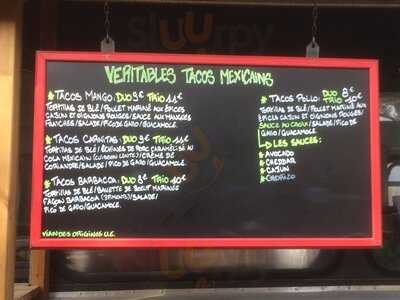 VERITABLES TACOS MEXICAINS
* TACOS MANGO: DUO 9€ TRIO 11€
TORTILLAS DE BLÉ/POULET MARINÉ AUX ÉPICES
CAJUN ET OIGNONS ROUGES/SAUCE AUX MANGUES
FRAICHES/SALADE/PICO DE GAIO/GUACAMOLE.
* TACOS CARNITAS: DUO 9€ TRIO 11€
TORTILLAS DE BLÉ/ÉCHINES DE PORC CARAMÉLISÉ AU
COLA MEXICAIN (CUISSON LENTE)/CRÈME DE
CORIANDRE/SALADE/PICO DE GAIO/GUACAMOLE.
* TACOS BARBACOA: DUO 8€ TRIO 10€
TORTILLAS DE BLÉ/BAVETTE DE BOEUF MARINÉE
FAÇON BARBACOA (PIMENTS)/SALADE/
PICO DE GAIO/GUACAMOLE.
VIANDES ORIGINES U.E.
* TACOS POLLO: DUO 8€
TRIO 10€
TORTILLAS DE BLÉ/POULET MARINÉ AUX
ÉPICES CAJUN ET OIGNONS ROUGES/
SAUCE AU CHOIX/SALADE/PICO DE
GAIO/GUACAMOLE.
LES SAUCES:
* AVOCADO
* CHEDDAR
* CAJUN
* CHORIZO